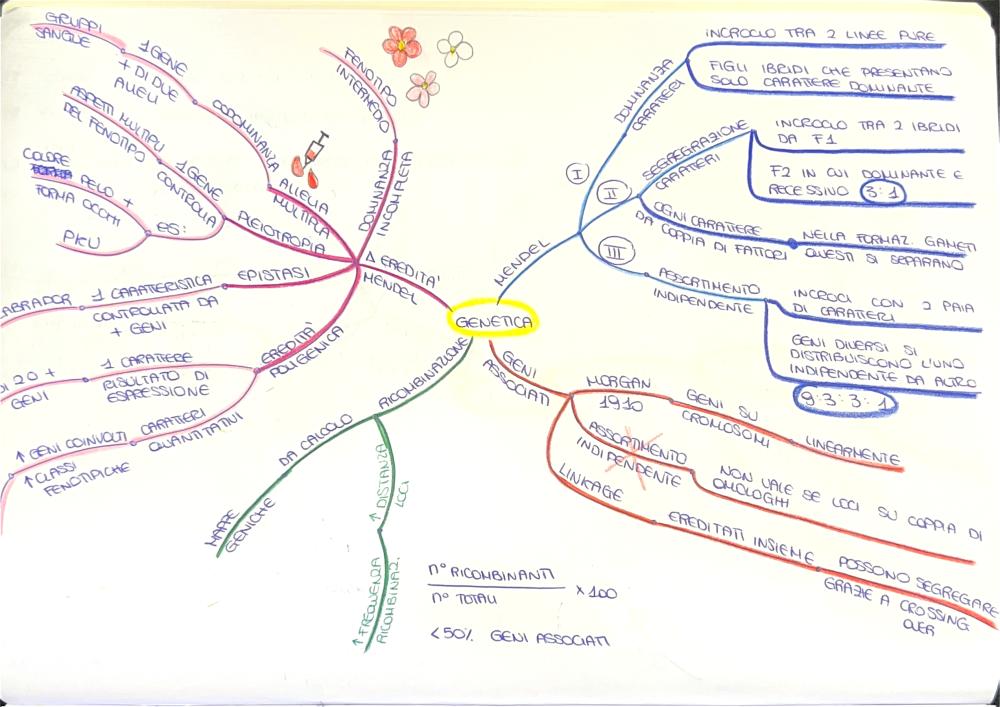 GENETICA
MENDEL
I
DOMINANZA
CARATTERI
INCROCIO TRA 2 LINEE PURE
FIGLI IBRIDI CHE PRESENTANO
SOLO CARATTERE DOMINANTE
II
SEGREGAZIONE
CARATTERI
INCROCIO TRA 2 IBRIDI
DA F1
F2 IN CUI DOMINANTE E
RECESSIVO 3:1
OGNI CARATTERE
DA COPPIA DI FATTORI
NELLA FORMAZ. GAMETI
QUESTI SI SEPARANO
III
ASSORTIMENTO
INDIPENDENTE
INCROCI CON 2 PAIA
DI CARATTERI
GENI DIVERSI SI
DISTRIBUISCONO L'UNO
INDIPENDENTE DA ALTRO
9:3:3:1
GENI
ASSOCIATI
MORGAN
1910
GENI SU
CROMOSOMI
LINEARMENTE
ASSORTIMENTO
INDIPENDENTE
NON VALE SE LOCI SU COPPIA DI
OMOLOGHI
LINKAGE
EREDITATI INSIEME
POSSONO SEGREGARE
GRAZIE A CROSSING
OVER
RICOMBINAZIONE
DA CALCOLO
MAPPE
GENICHE
↑ DISTANZA
LOCI
↑ FREQUENZA
RICOMBINAZ.
n° RICOMBINANTI
n° TOTALI
× 100
<50% GENI ASSOCIATI
Δ EREDITA'
MENDEL
DOMINANZA
INCOMPLETA
FENOTIPO
INTERMEDIO
ALLELIA
MULTIPLA
CODOMINANZA
1 GENE
+ DI DUE
ALLELI
GRUPPI
SANGUE
PLEIOTROPIA
1 GENE
CONTROLLA
ASPETTI MULTIPLI
DEL FENOTIPO
es:
COLORE
PELO +
FORMA OCCHI
PICU
EPISTASI
1 CARATTERISTICA
CONTROLLATA DA
+ GENI
LABRADOR
EREDITA'
POLIGENICA
1 CARATTERE
RISULTATO DI
ESPRESSIONE
DI 20 +
GENI
CARATTERI
QUANTITATIVI
↑ GENI COINVOLTI
↑ CLASSI
FENOTIPICHE